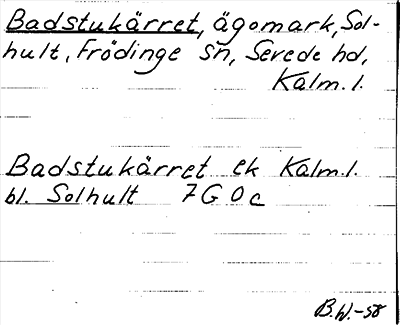 Badstukärret, ägomark, Sol-
hult, Frödinge sn, Sevede hd,
Kalm. l.
Badstukärret ek Kalm. l.
bl. Solhult 7G 0c
B.W.-58